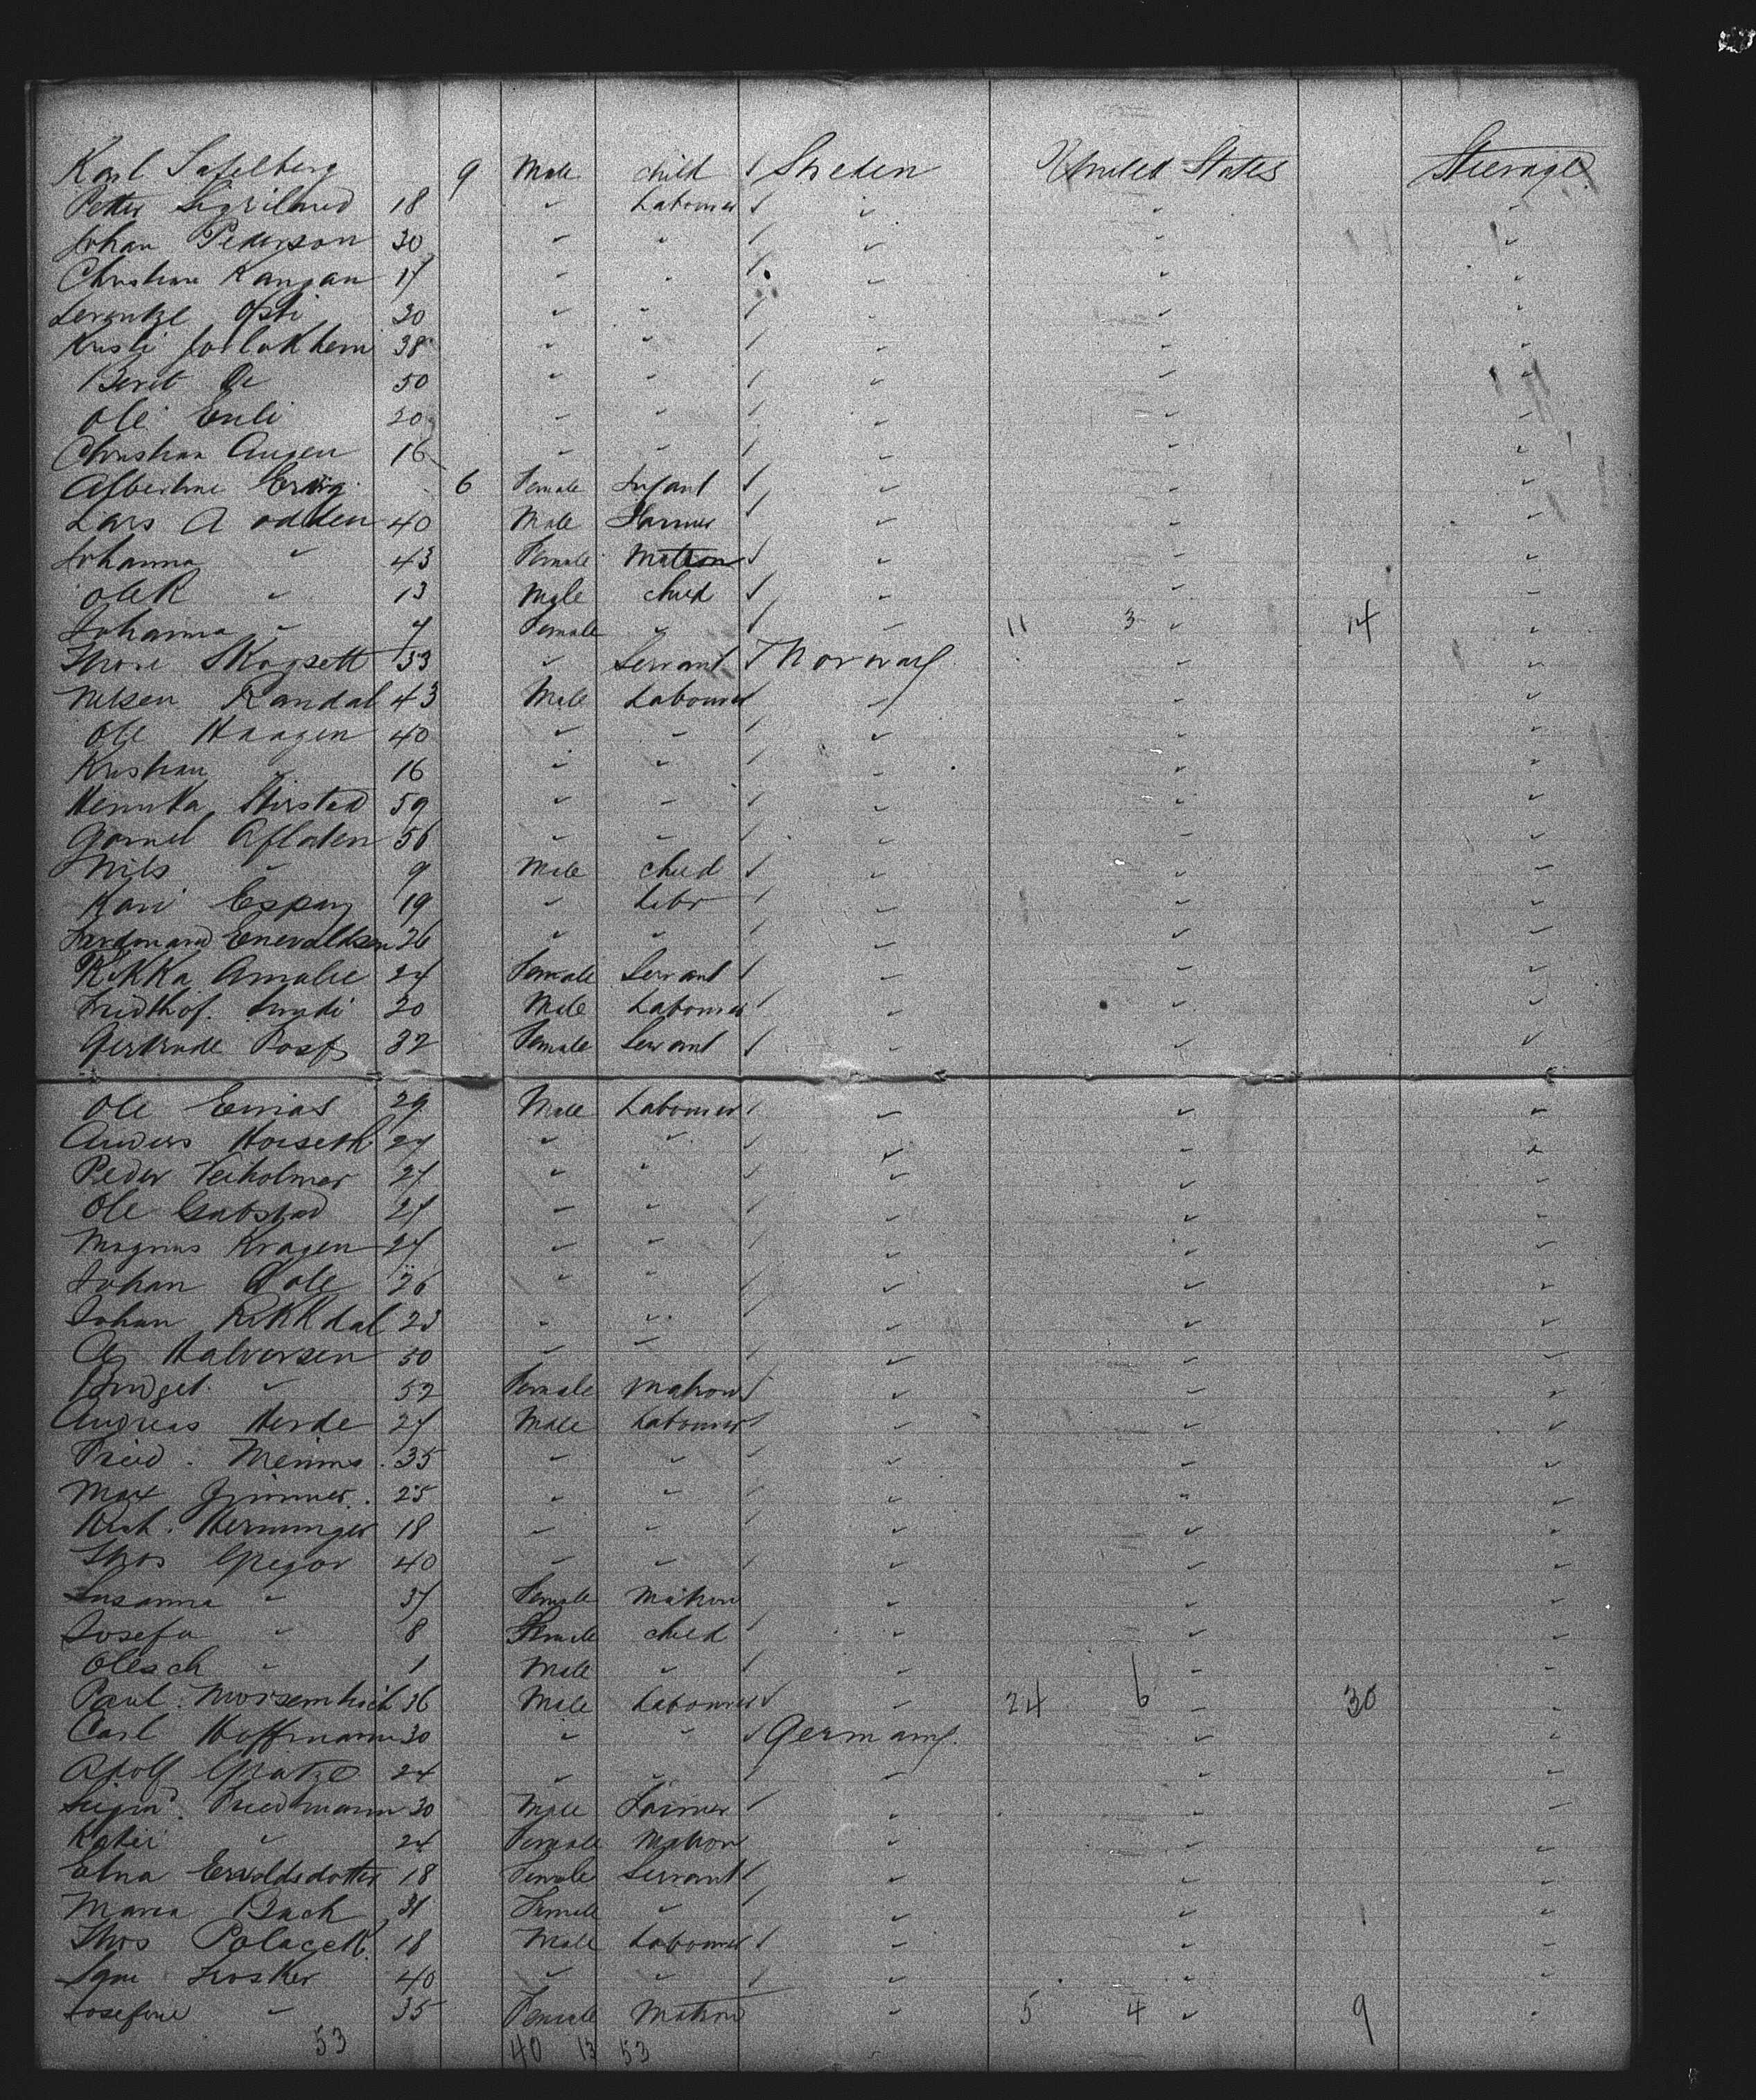 Karl Safelberg 9 Male child Sweden United States Steerage
Petter 18 " Labourer " " "
Johan Pederson 30 " " " " "
Christian Kangan 17 " " " " "
Lerentze Opti 30 " " " " "
Kristi 38 " " " " "
Berit Do 50 " " " " "
Ole Enli 20 " " " " "
Christian Augen 16 " " " " "
Albertine 6 Female Infant " " "
Lars A odden 40 Male Farmer " " "
Johanna " 43 Female Matron " " "
Ole R " 13 Male child " " "
Johanna " 7 Female " " 11 3 " 14 "
Thore Skogsett 33 " Servant Norway " "
Nelsen Randal 43 Male Labourer " " "
Ole Haagen 40 " " " " "
Kristian " 16 " " " " "
Hirstad 59 " " " " "
Gomel Afloden 56 " " " " "
Nils " 9 Male child " " "
Kari Espary 19 " Labr " " "
Ferdinand Enevaldsen 26 " " " " "
Rikka Amalie 24 Female Servant " " "
Fridthof. 20 Male Labourer " " "
Gertrude 32 Female Servant " " "
Ole Emias 29 Male Labourer " " "
Anders Horseth 27 " " " " "
Peder Veiholmer 27 " " " " "
Ole Gabstad 27 " " " " "
Magnus Kragen 27 " " " " "
Johan Dole 26 " " " " "
Johan Rikkdal 23 " " " " "
Halversen 50 " " " " "
" 52 Female Matron " " "
Andreas Herde 27 Male Labourer " " "
Fried. Menima 35 " " " " "
Max Zimmer 25 " " " " "
Herminger 18 " " " " "
Thos Gregor 40 " " " " "
Susanna " 37 Female Matron " " "
Josefa " 8 Female child " " "
Olesch " 1 Male " " " "
Paul 36 Male Labourer " 24 6 " 30 "
Carl Hoffmann 30 " " Germany " "
Adolf Gratze 24 " " " " "
Friedmann 30 Male Farmer " " "
Katie " 24 Female Matron " " "
Elna Ersoldsdotter 18 Female Servant " " "
Maria Bach 31 Female " " " "
Thos Polacek 18 Male Labourer " " "
Sam Frosker 40 " " " " "
Josefine " 35 Female Matron " 5 4 " 9 "
53 40 13 53